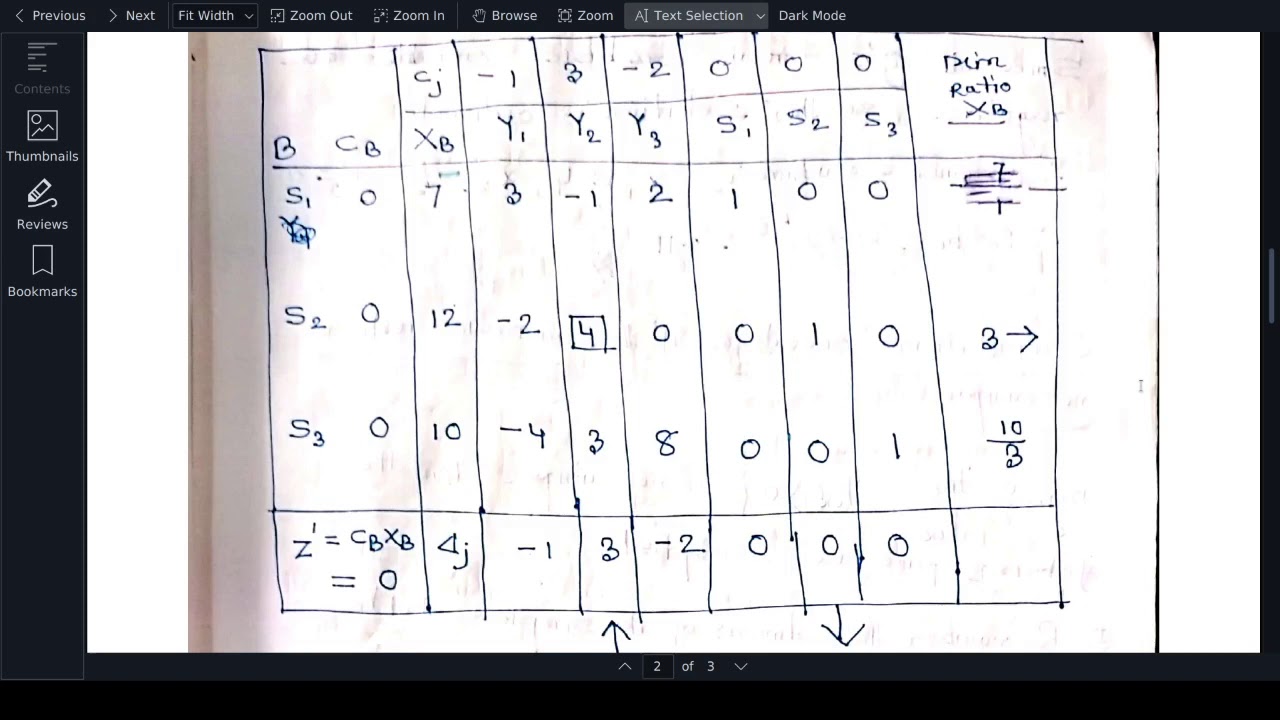 Previous Next Fit Width Zoom Out Zoom In Browse Zoom Text Selection Dark Mode
Contents
Thumbnails
Reviews
Bookmarks
Cj -1 3 -2 0 0 0 Min Ratio XB
B CB XB Y1 Y2 Y3 S1 S2 S3
S1 0 7 3 -1 2 1 0 0
S2 0 12 -2 4 0 0 1 0 3 →
S3 0 10 -4 3 8 0 0 1 10/3
Z' = CBXB Δj -1 3 -2 0 0 0
= 0
2 of 3